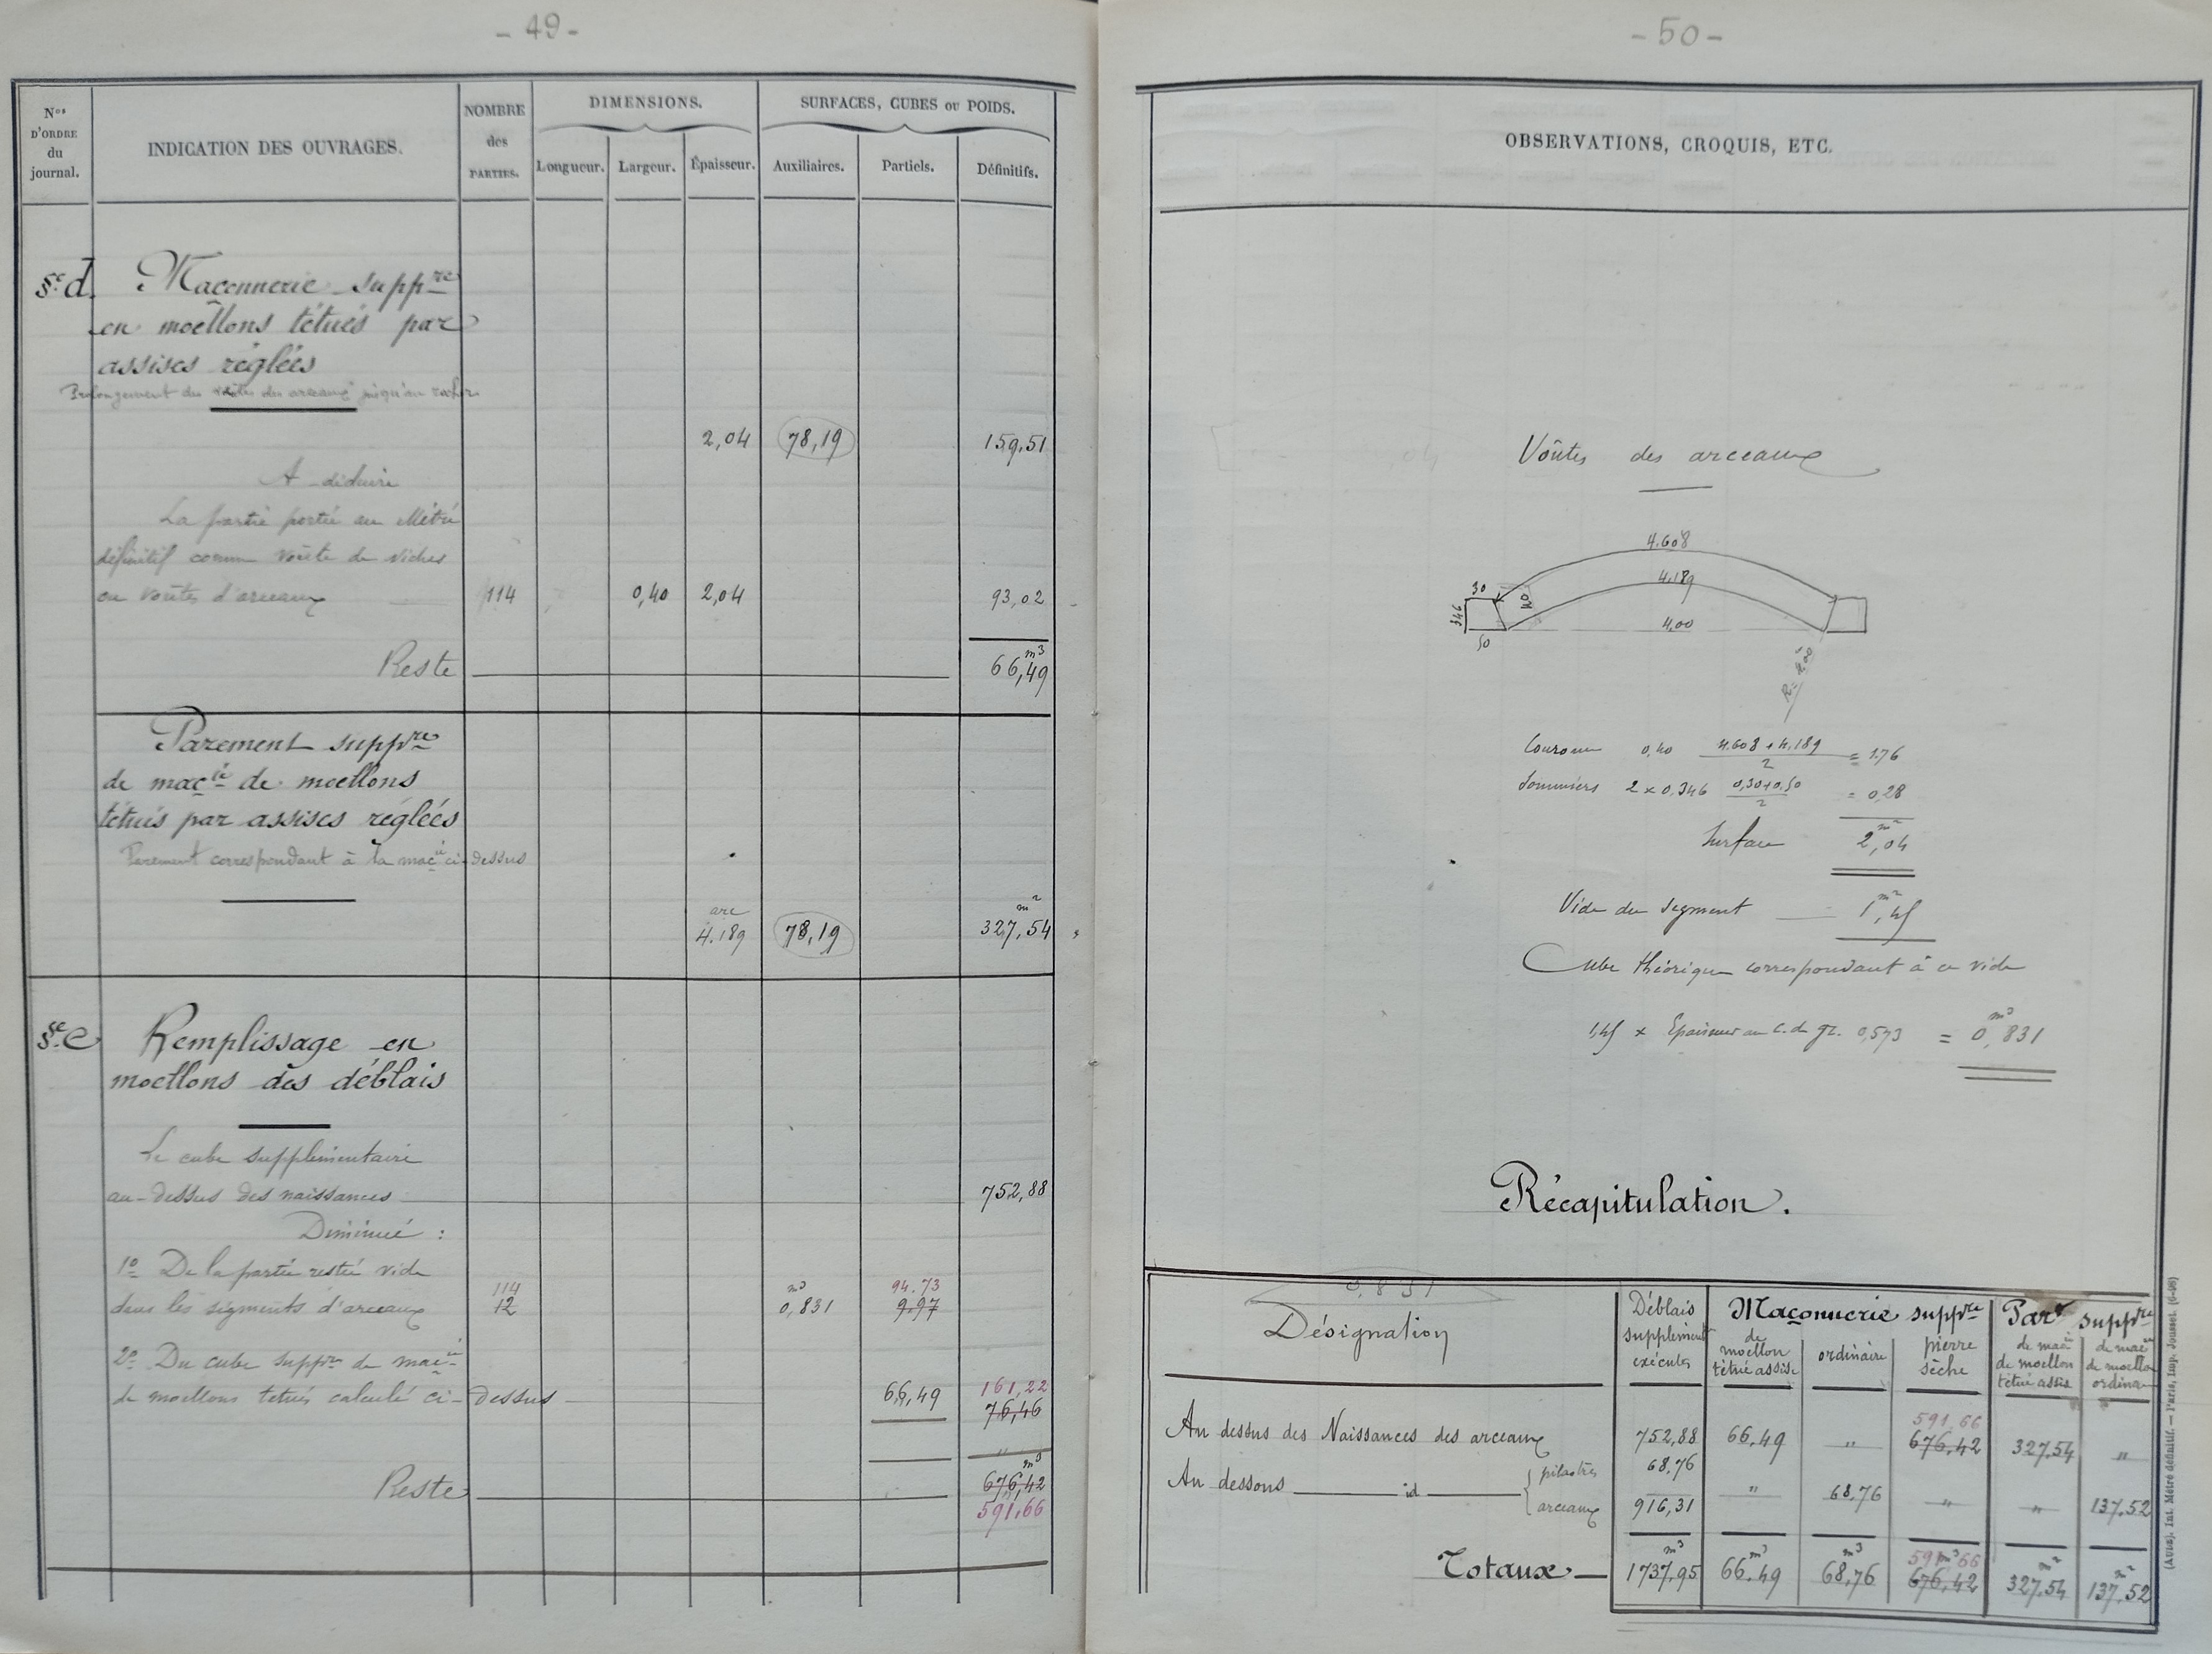 - 49 -
Nos
D'ORDRE
du
journal.
INDICATION DES OUVRAGES.
NOMBRE
des
PARTIES.
DIMENSIONS.
Longueur.
Largeur.
Épaisseur.
SURFACES, CUBES OU POIDS.
Auxiliaires.
Partiels.
Définitifs.
§e d. Maçonnerie suppre
en moëllons têtués par
assises réglées
Prolongement des voûtes des arceaux jusqu'au rocher
2,04 78,19 159,51
A déduire
La partie portée au Métré
définitif comme voûte de niches
ou voûtes d'arceaux 114 0,40 2,04 93,02
Reste m3
66,49
Parement suppre
de macie de moellons
têtués par assises réglées
Parement correspondant à la macie ci-dessus
arc m2
4.189 78,19 327,54
§e e Remplissage en
moellons des déblais
Le cube supplémentaire
au-dessus des naissances 752,88
Diminué :
1o De la partie restée vide 114 m3 94.73
dans les segments d'arceaux 12 0,831 9.97
2o Du cube suppre de macie
de moellons tetués calculé ci-dessus 66,49 161,22
76,46
"
m3
Reste 676,42
591,66
- 50 -
OBSERVATIONS, CROQUIS, ETC.
Voûtes des arceaux
4.608
4.189
30
40
346
50
4,00
R= 4.00
Couronne 0,40 4.608 + 4,189 / 2 = 1.76
Sommiers 2 × 0,346 0,30+0,50 / 2 = 0,28
Surface m2
2,04
Vide du segment m2
1,45
Cube théorique correspondant à ce vide
1,45 × Epaisseur au c. de gr. 0,573 = m3
0,831
Récapitulation.
0,831
Désignation
Déblais
supplément
exécutés
Maçonnerie suppre
de
moellon
têtué assise
ordinaire
pierre
sèche
Part suppre
de macie
de moellon
têtué assis
de macie
de moellon
ordinaire
591,66
Au dessus des Naissances des arceaux 752,88 66,49 " 676,42 327,54 "
Au dessous id { pilastres 68,76
arceaux 916,31 " 68,76 " " 137.52
m3 m3 m3 591,66 m3 m2 m2
Totaux 1737,95 66,49 68,76 676,42 327,54 137,52
(Auxa). Int. Métré définitif. — Paris, Imp. Jousset. (6-96)